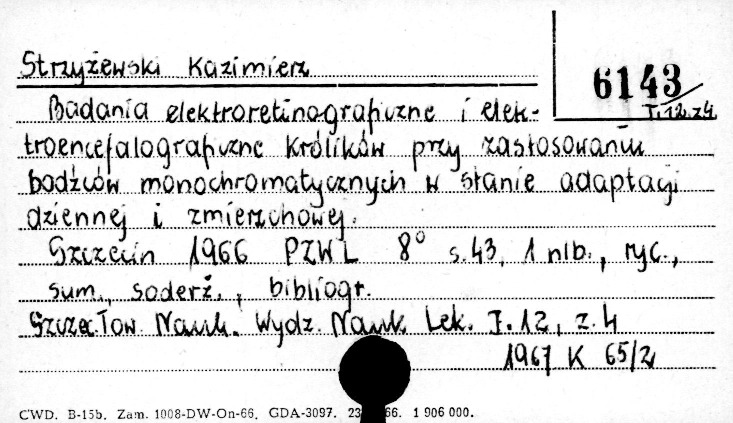 Strzyżewski Kazimierz
6143/
T.12.z4
Badania elektroretinograficzne i elek-
troencefalograficzne królików przy zastosowaniu
bodźców monochromatycznych w stanie adaptacji
dziennej i zmierzchowej.
Szczecin 1966 PZWL 8° s.43, 1 nlb., ryc.,
sum., soderż., bibliogr.
Szczec.Tow. Nauk. Wydz. Nauk Lek. T.12, z.4
1967 K 65/2
CWD. B-15b. Zam. 1008-DW-On-66. GDA-3097. 66. 1 906 000.